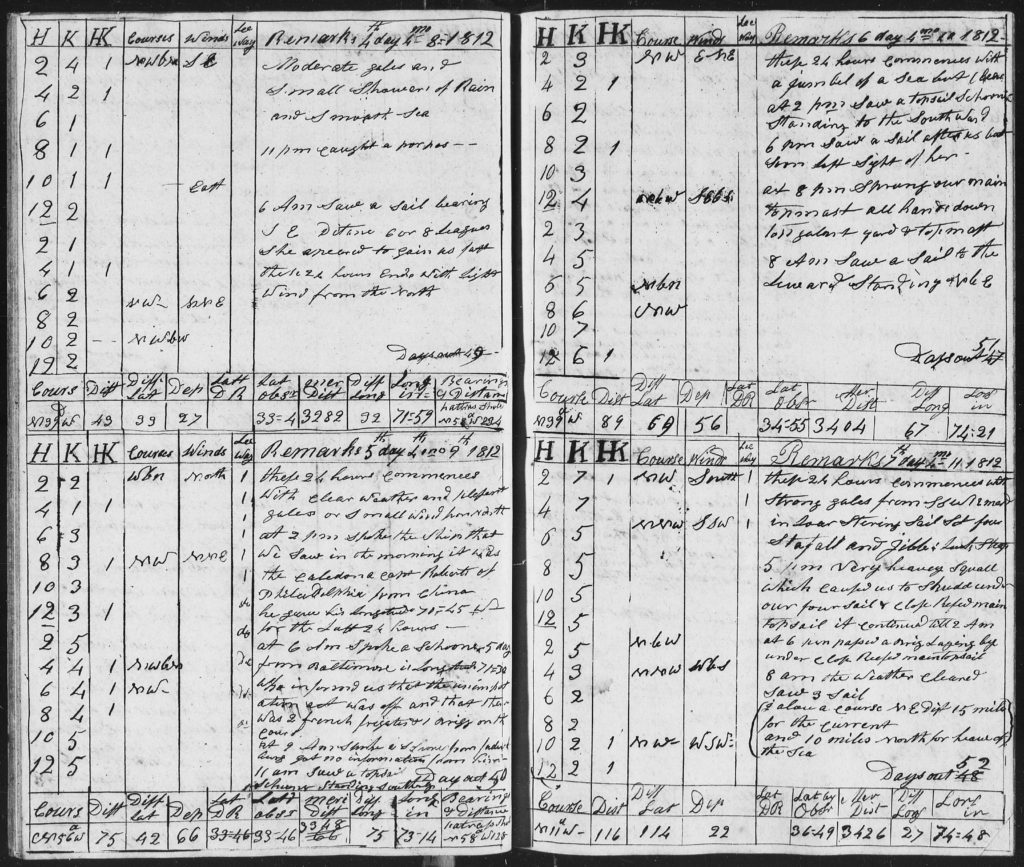 H K HK Courses Winds Lee way Remarks 4th day 4mo 8= 1812
2 4 1 NWbN SE Moderate gales and
4 2 1 Small Showers of Rain
6 1 and Smooth Sea
8 1 1 11 pm caught a porpos --
10 1 1 East
12 2 6 Am Saw a Sail bearing
2 1 SE Distance 6 or 8 Leagues
4 1 1 She apeared to gain us fast
6 2 NW- NNE these 24 hours Ends With light
8 2 Wind from the North
10 2 -- NWbW
12 2
Days out 49
Cours Dist Diff Latt Dep Latt DR Lat Obsr mer Dist Diff Long Longt in Bearings & Distanc
N39W 43 33 27 33=4 3282 32 71=59
H K HK Courses Winds Lee way Remarks 5th day 4th mo 9th 1812
2 2 WbN North 1 these 24 hours commences
4 1 1 1 With Clear Weather and plesent
6 3 1 gales or Small Wind from North
8 3 1 NW NNE 1 at 2 pm Spoke the Ship that
10 3 1 We Saw in the morning it was
12 3 1 the Caledona capt Roberts of
Philadelphia from China
he gave his longitude 70=45
2 5 for the Last 24 hours -
4 4 1 NWbW at 6 Am Spoke a Schooner 5 day
6 4 1 NW- from Baltimore is Long
8 4 1 who informd us that the
10 5 ation act was off and that their
12 5 Was 2 french frigates & 1 Brigg on the
Coast
at 9 Am Spoke a
got no information from him
11 am Saw a topsail
Schuner Standing Southerly
Day out 50
Cours Dist Diff Lat Dep Lat DR Latt obsr meri Dist Diff Long Long in Bearing & distance
N56W 75 42 66 33=46 33=46 3348 75 73=14
H K HK Course Wind Lee Way Remarks 6 day 4mo 10 1812
2 3 NW ENE these 24 hours Commences With
4 2 1 a jumbel of a Sea
6 2 at 2 pm Saw a topsail Schooner
Standing to the South Ward
8 2 1 6 pm Saw a Sail after us but
10 3 Soon left Sight of her -
12 4 at 8 pm Sprung our main
2 3 topmast all hands down
4 5 galant yard & topmast
6 5 NWbN 8 Am Saw a Sail to the
8 6 NW Leward Standing
10 7
12 6 1
Days out 51
Course Dist Diff Lat Dep Lat DR Lat Obsr Mer Dist Diff Long Long in
N39W 89 69 56 34=55 3404 67 74=21
H K HK Course Wind Lee Way Remarks 7th day 4mo 11 1812
2 7 1 NW South 1 these 24 hours commences with
4 7 1 Strong gales from SSW
6 5 NNW SSW 1 Stering Sail Set four
8 5 Stasall and Jibb
10 5 5 pm Very heavey Squall
12 5 which Caused us to Scudd under
our four Sail & Close Reefd main
topsail it continued till 2 Am
2 5 NbW at 6 am pased a Brig Laying by
4 3 NNW WbS under Close Reefd maintopsail
6 2 8 am the Weather Cleared
Saw 3 Sail
8 2 I alow a course NE Dist 15 miles
10 2 1 NW- WSW- for the Current
12 2 1 and 10 miles North for heave of
the Sea
Days out 52
Course Dist Diff Lat Dep Lat DR Lat by Obsr Mer Dist Diff Long Long in
N11W- 116 114 22 36=49 3426 27 74=48